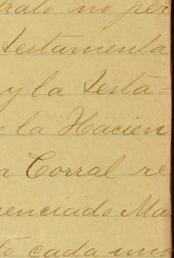 trato no per
testamenta
y la testa=
e la Hacien
n Corral re
cenciado Ma
to cada uno